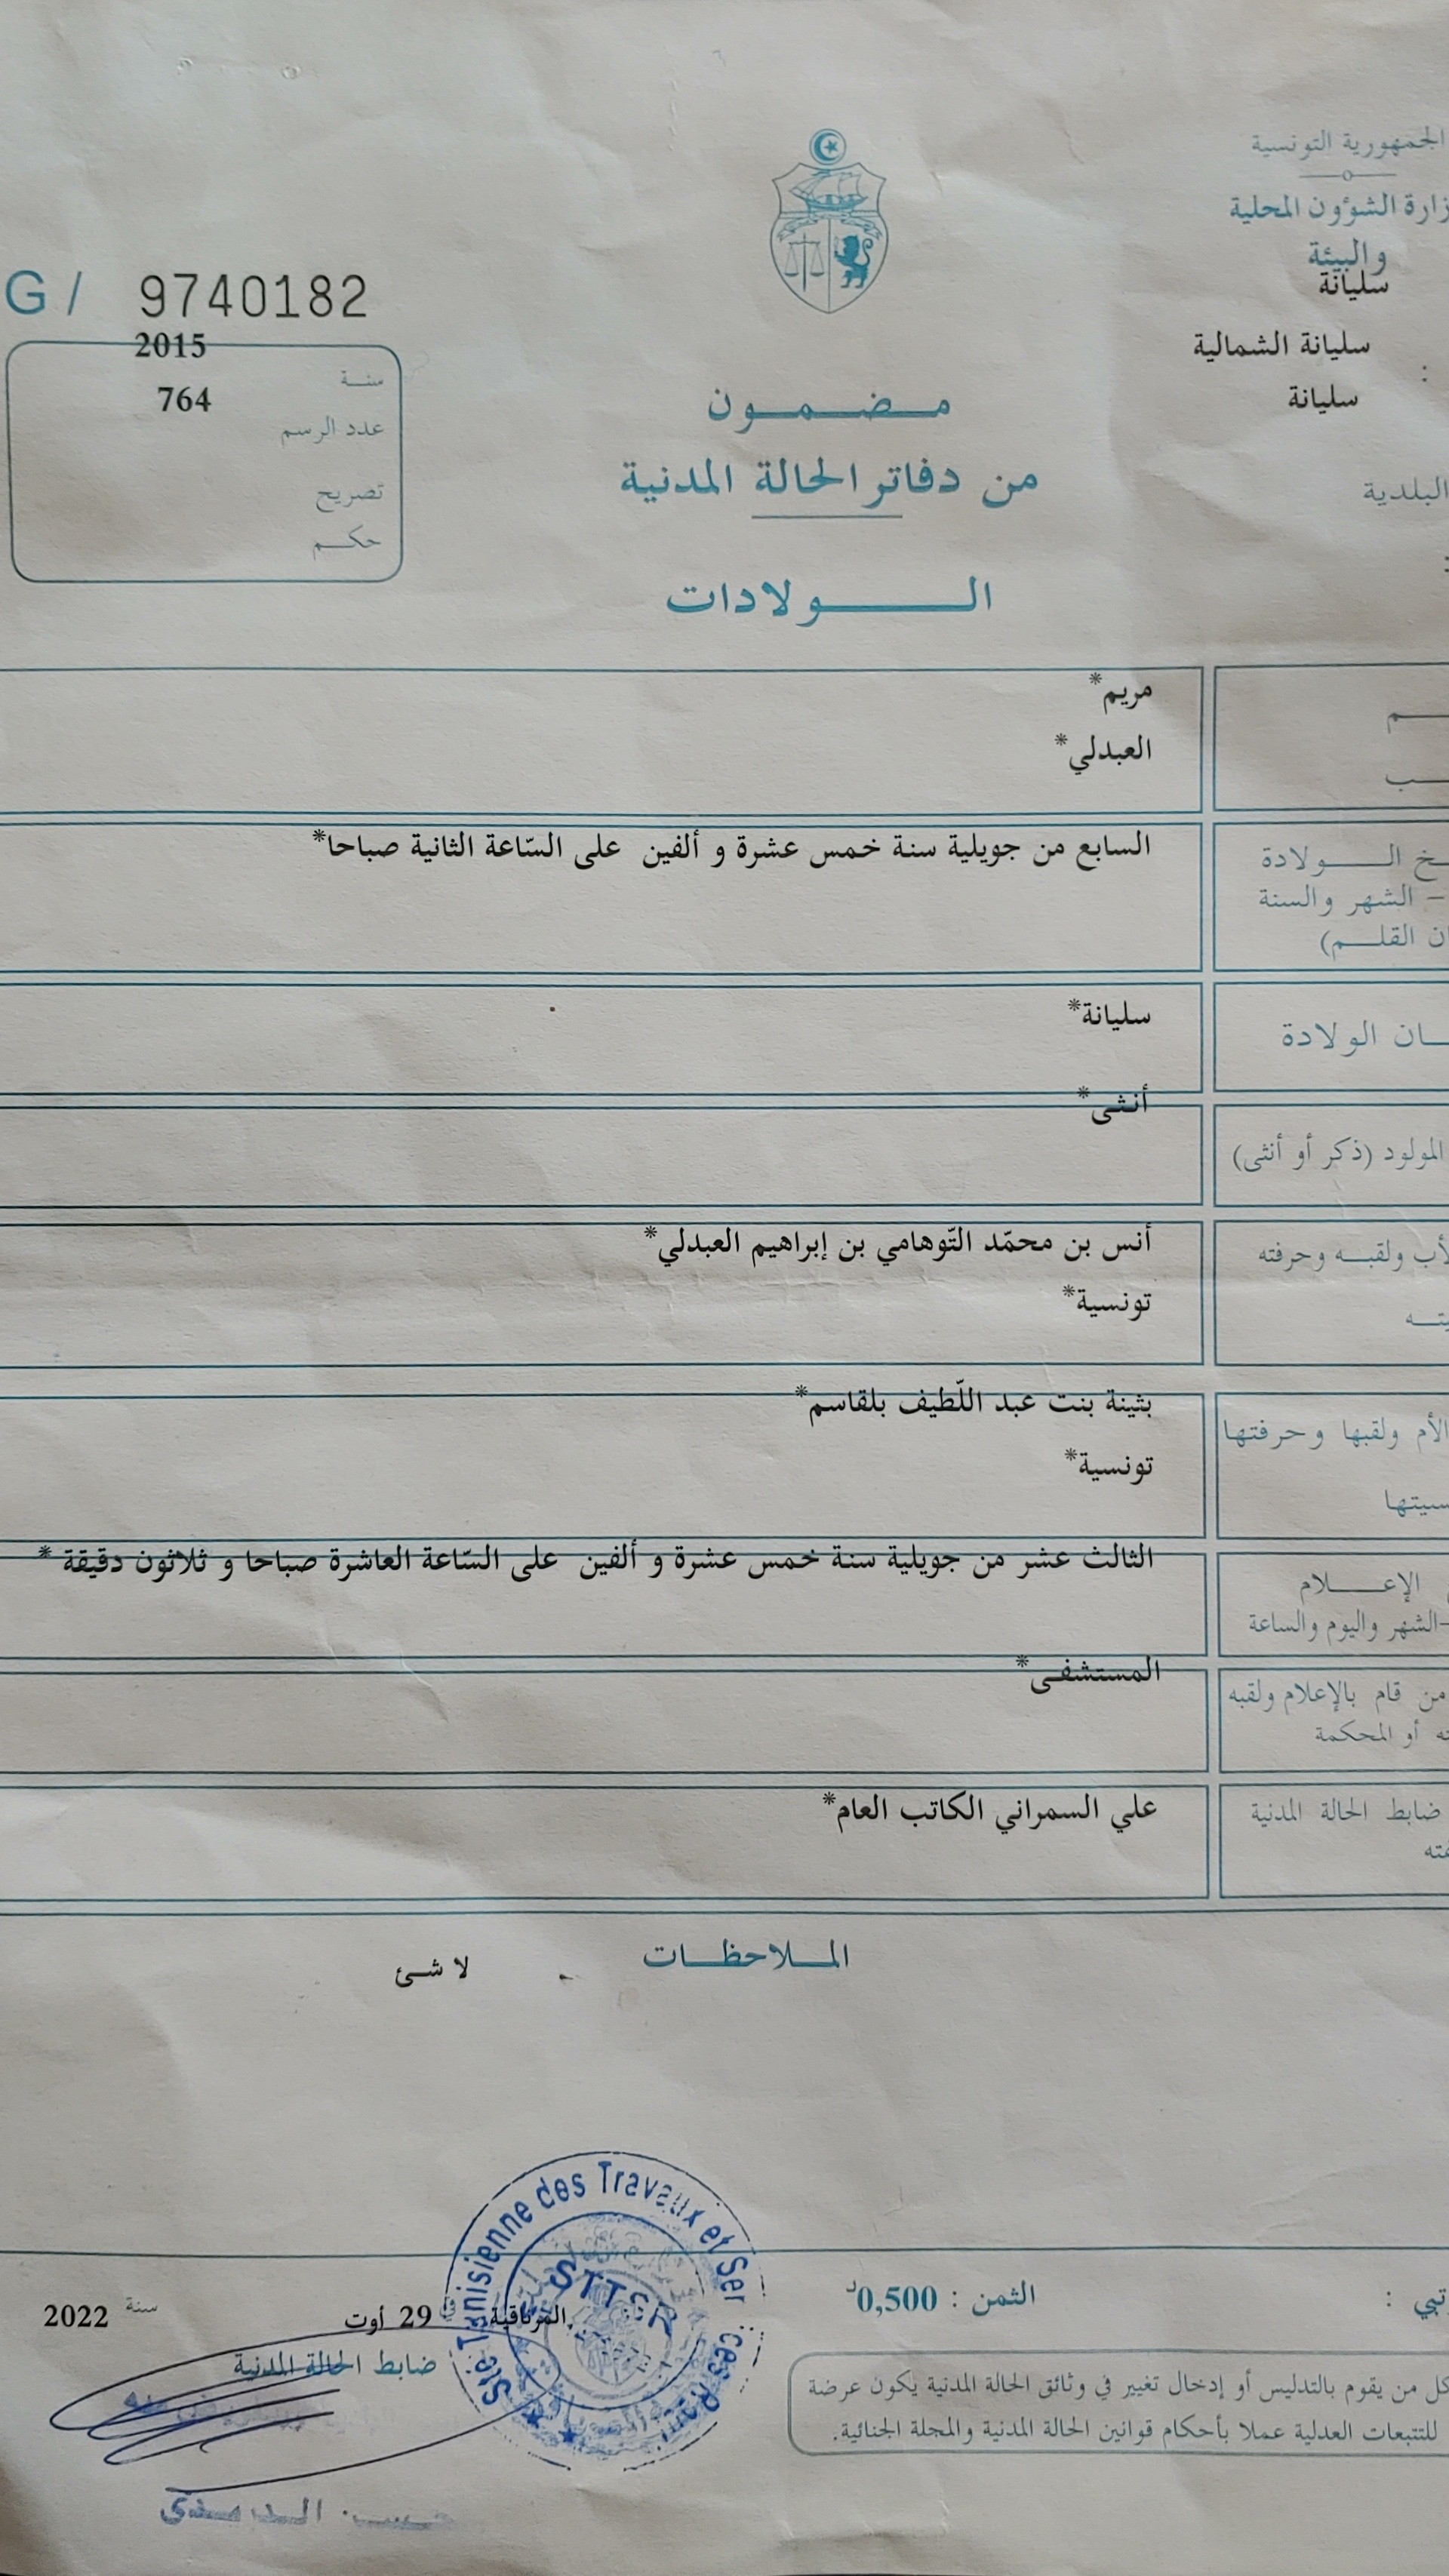 الجمهورية التونسية
وزارة الشؤون المحلية
والبيئة
سليانة
سليانة الشمالية :
سليانة
البلدية
G / 9740182
2015
سنة
764
عدد الرسم
تصريح
حكم
مضمون
من دفاتر الحالة المدنية
الولادات
مريم*
العبدلي*
الولادة
السابع من جويلية سنة خمس عشرة و ألفين على السّاعة الثانية صباحا*
- الشهر والسنة
القلم)
الولادة
سليانة*
أنثى*
المولود (ذكر أو أنثى)
ولقبه وحرفته
أنس بن محمّد التّوهامي بن إبراهيم العبدلي*
تونسية*
الأم ولقبها وحرفتها
بثينة بنت عبد اللّطيف بلقاسم*
تونسية*
الثالث عشر من جويلية سنة خمس عشرة و ألفين على السّاعة العاشرة صباحا و ثلاثون دقيقة *
الإعلام
-الشهر واليوم والساعة
المستشفى*
من قام بالإعلام ولقبه
أو المحكمة
ضابط الحالة المدنية
علي السمراني الكاتب العام*
الملاحظات
لا شئ
الثمن : 0,500د
Sté Tunisienne des Travaux et Ser ces R
STTSR
المرناقية في 29 أوت سنة 2022
ضابط الحالة المدنية
كل من يقوم بالتدليس أو إدخال تغيير في وثائق الحالة المدنية يكون عرضة
للتتبعات العدلية عملا بأحكام قوانين الحالة المدنية والمجلة الجنائية.